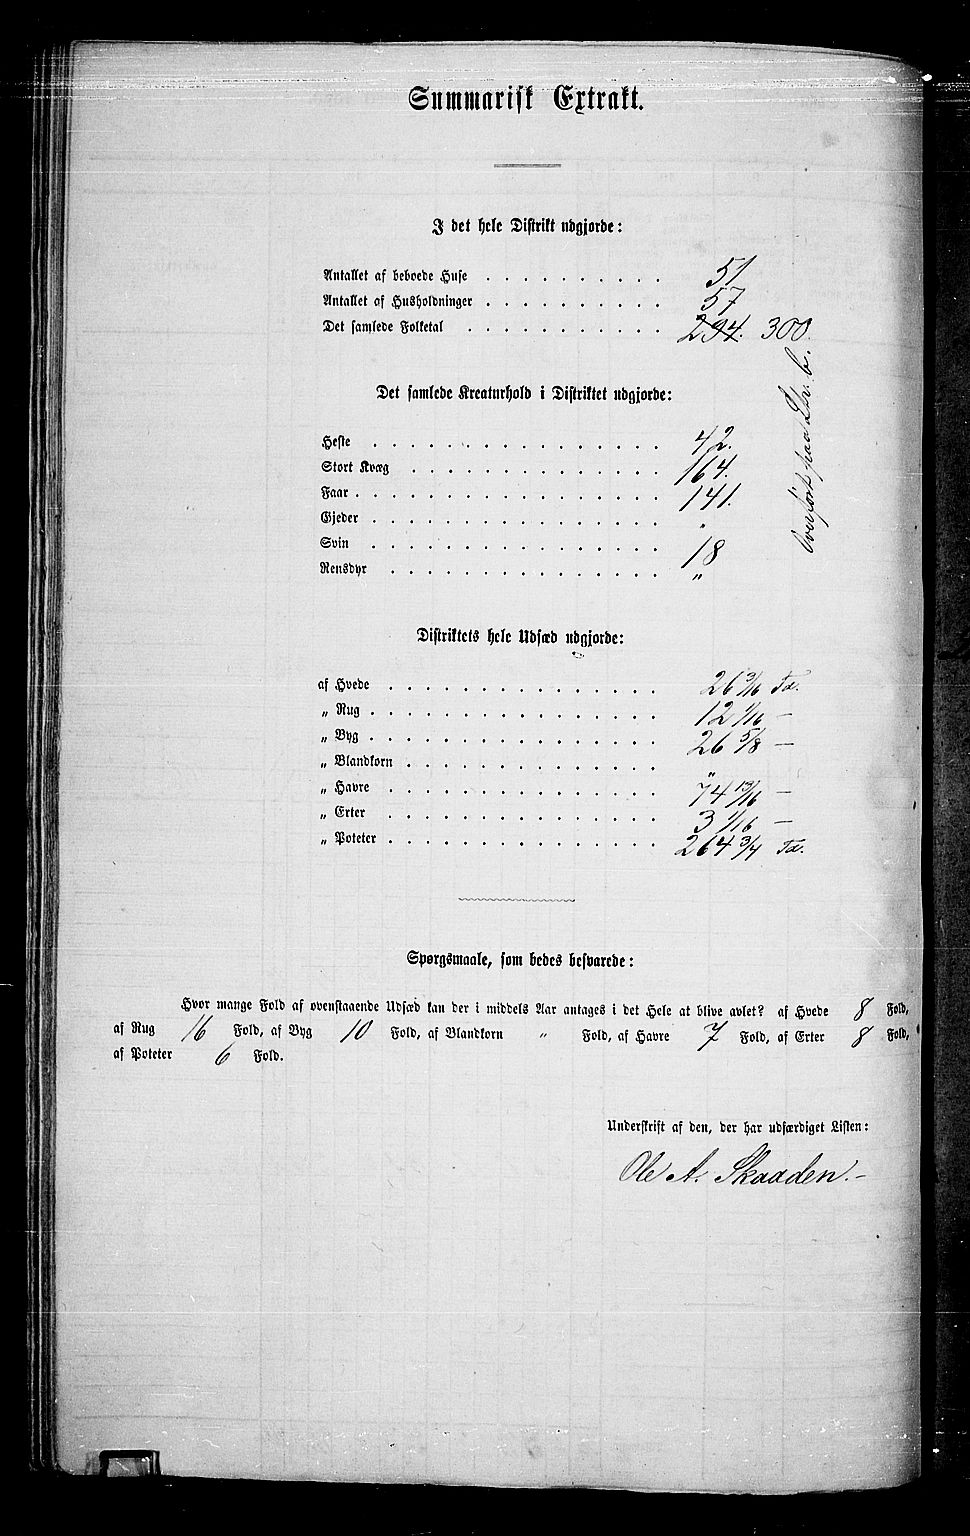 Summarisk Extrakt.
I det hele Distrikt udgjorde:
Antallet af beboede Huse 51
Antallet af Husholdninger 57
Det samlede Folketal 294. 300.
Det samlede Kreaturhold i Distriktet udgjorde:
Heste 42.
Stort Kvæg 164.
Faar 141.
Gjeder "
Svin 18
Rensdyr "
Overført paa Litr. b.
Distriktets hele Udsæd udgjorde:
af Hvede 26 3/16 Td.
„ Rug 12 1/16 —
„ Byg 26 5/8 —
„ Blandkorn "
„ Havre 74 13/16 —
„ Erter 3 1/16 —
„ Poteter 264 3/4 Td.
Spørgsmaale, som bedes besvarede:
Hvor mange Fold af ovenstaaende Udsæd kan der i middels Aar antages i det Hele at blive avlet? af Hvede 8 Fold,
af Rug 16 Fold, af Byg 10 Fold, af Blandkorn " Fold, af Havre 7 Fold, af Erter 8 Fold,
af Poteter 6 Fold.
Underskrift af den, der har udfærdiget Listen:
Ole A. Skaaden.—